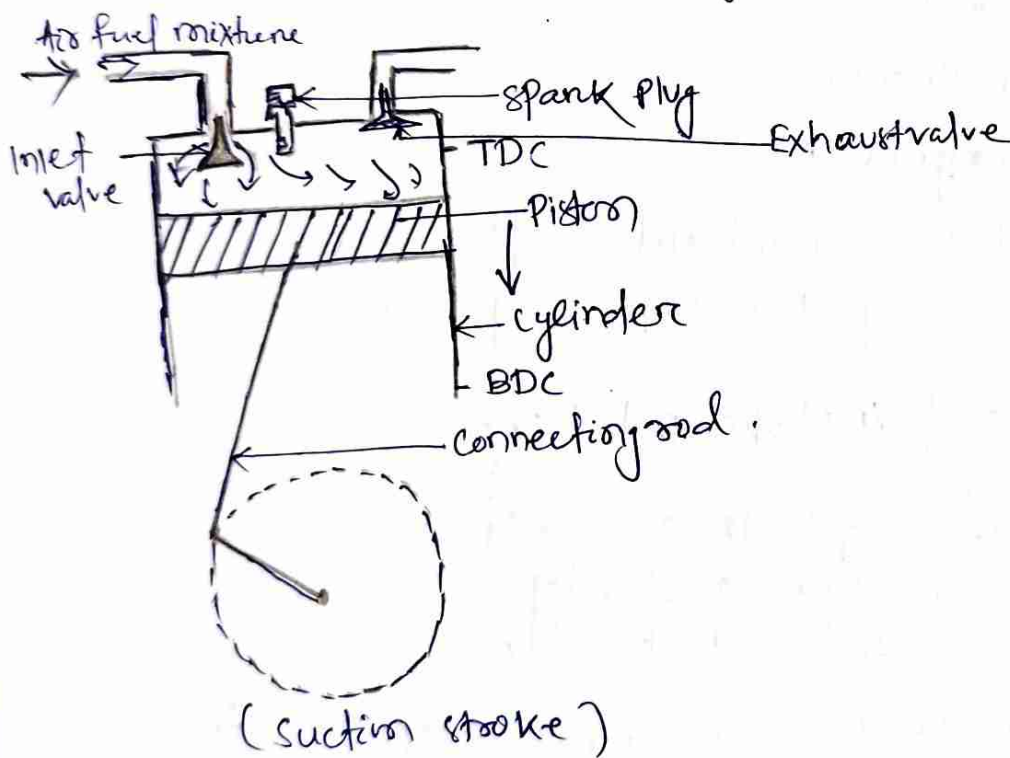 Air fuel mixture
spank plug
Exhaustvalve
TDC
Inlet
valve
Piston
cylinder
BDC
connecting rod.
(suction stroke)